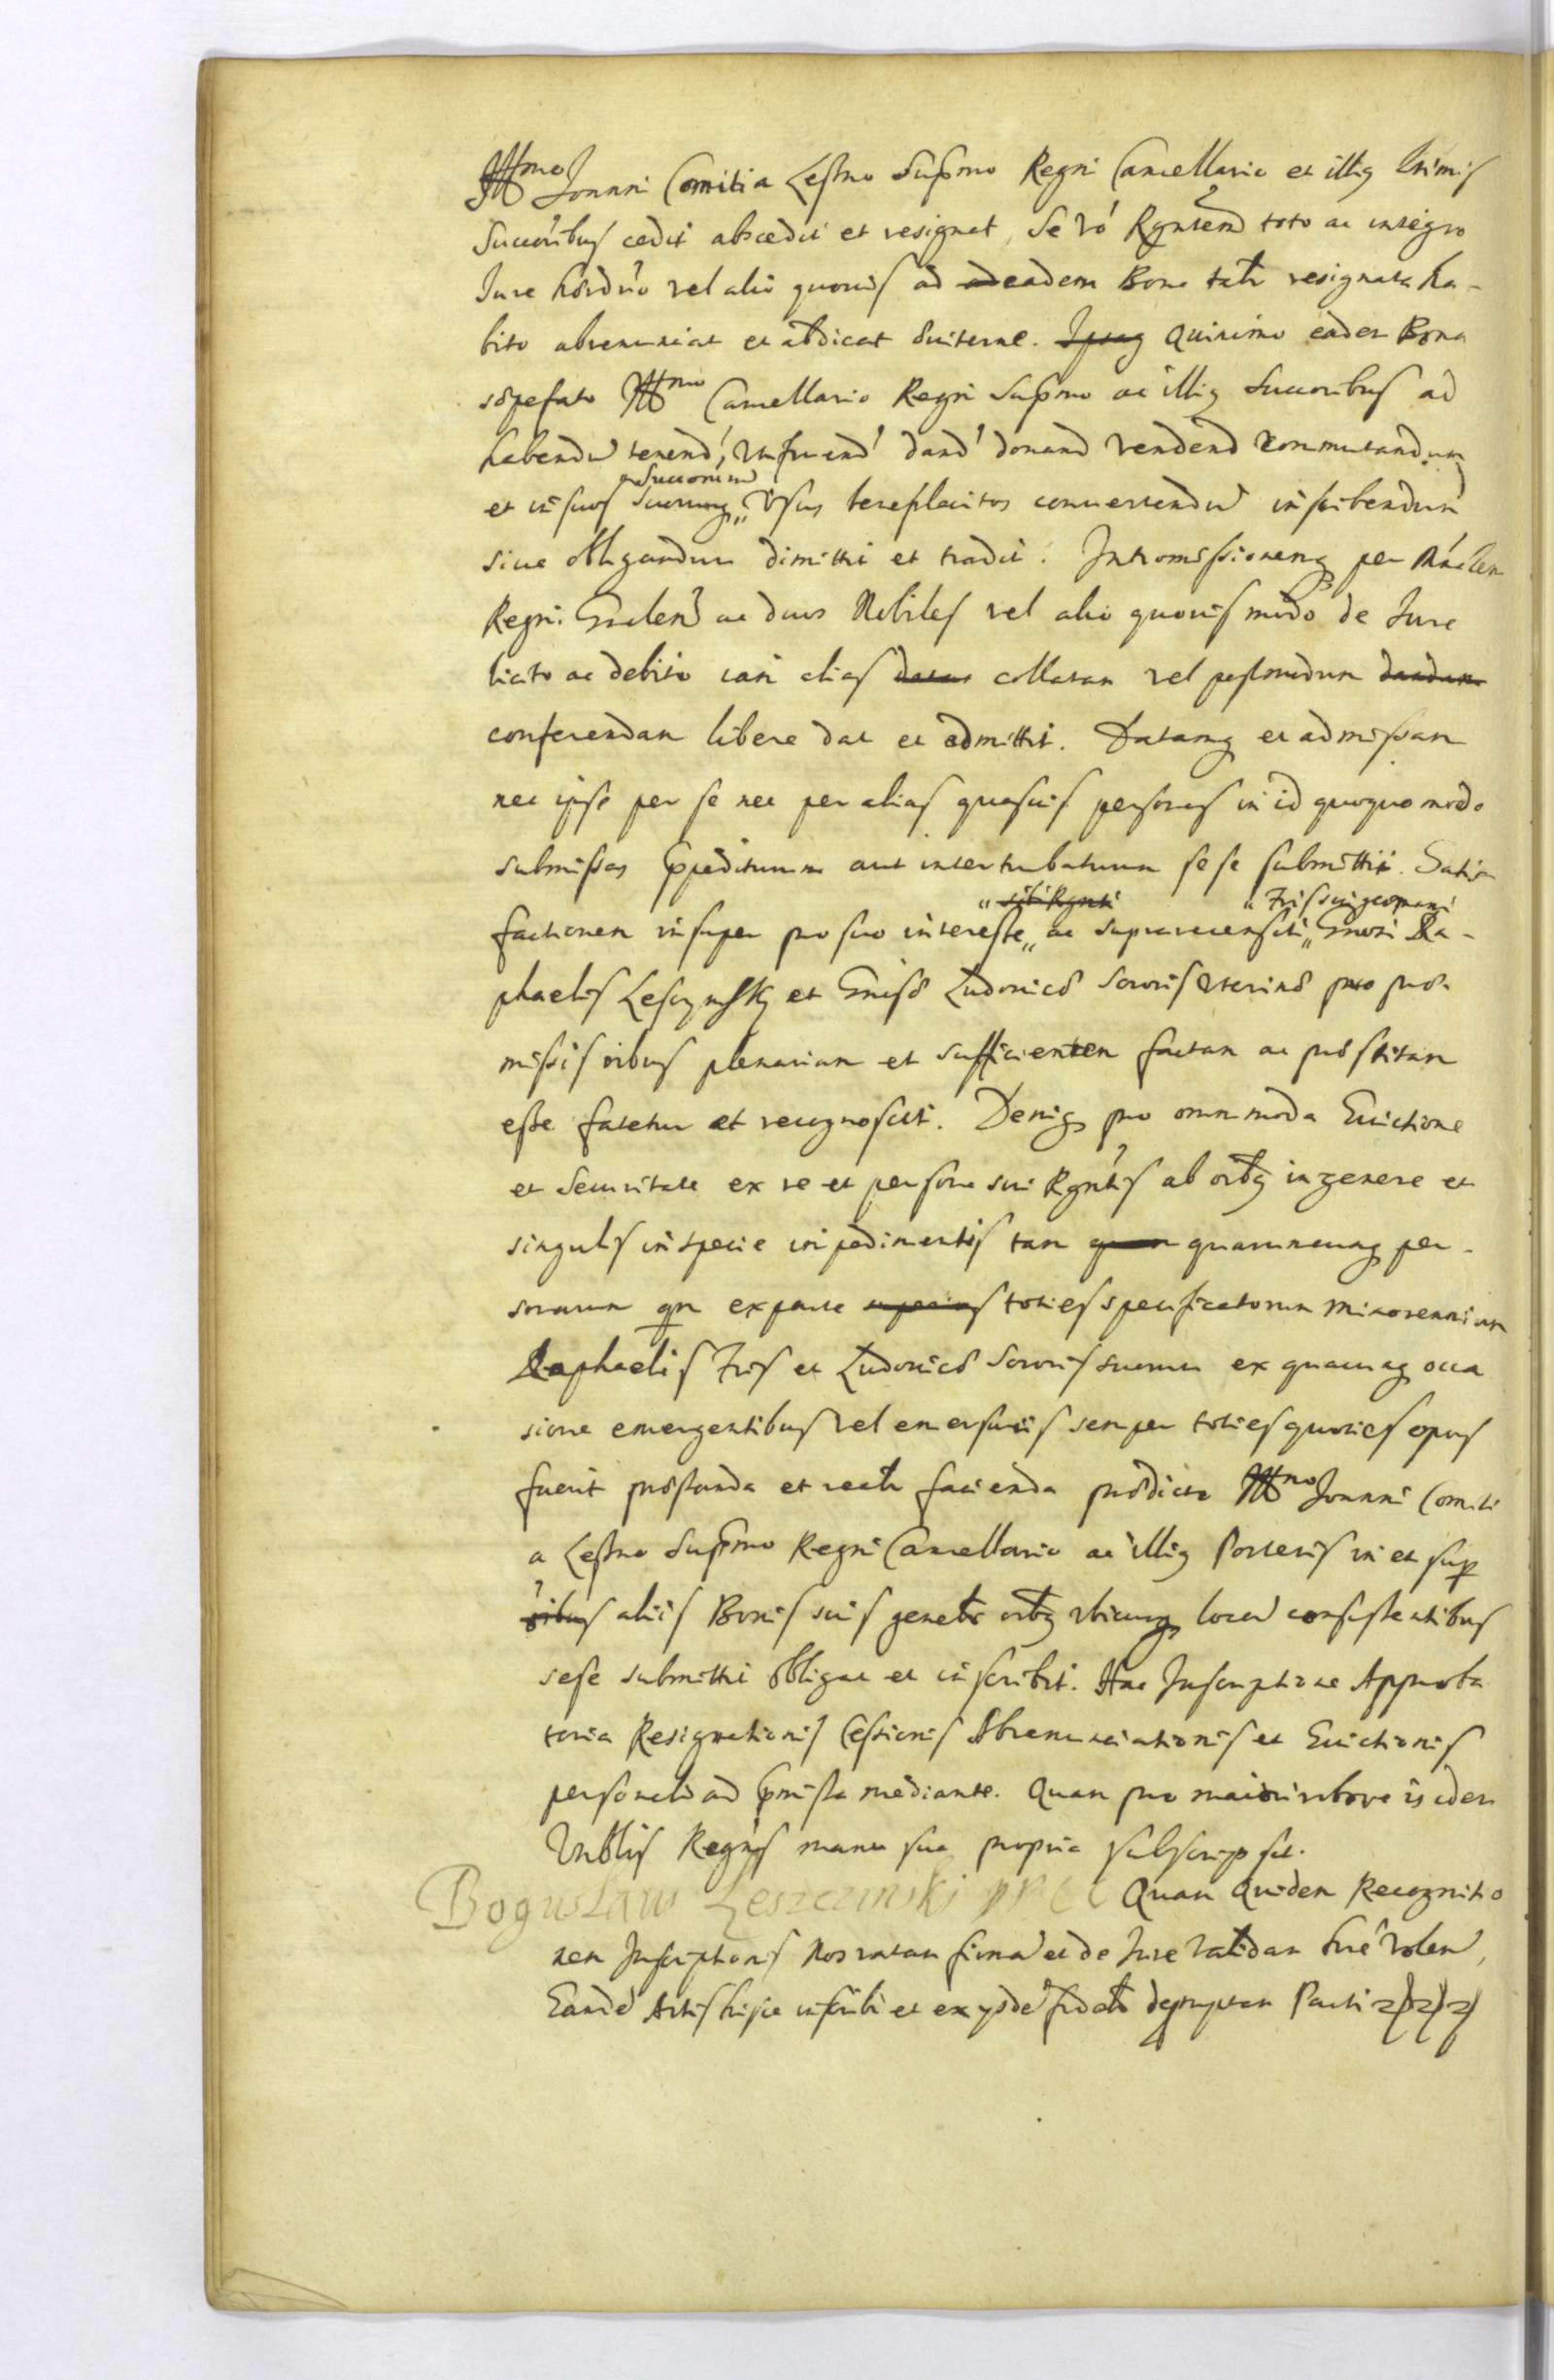 Illmo Joanni Comiti a Lesno Supmo Regni Cancellario et illiq ltimis
Succoribus cedit abscedit et resignat, Se vo Rgntem toto ac integro
Jure hærdrio vel alio quovis ad ad eadem Bona talr resignata ha-
bito abrenunciat et abdicat Suiterne. Ipsaq Quinimo eadem Bona
sæpefato Illmo Cancellario Regni Supmo ac illiq Succoribus ad
habendu tenend, utifruend dand donand vendend commutandum
et in suos Suorumq „ Succorum Usus beneplacitos convertendu inscribendum
sive obligandum dimittit et tradit. Intromissionemq per
Regni Gnalem ac duos Nobiles vel alio quovis modo de Jure
licito ac debito iam alias datam collatam vel postmodum dandam
conferendam libere dat et admittit. Datamq et admissam
nec ipse per se nec per alias quasvis personas in id quoquo modo
submissas Impediturum aut interturbaturum sese submittit. Satis-
„ sibi Rgnti „ Fris sui germani
factionem insuper pro suo interesse „ ac suprarecensiti „ Gnosi Ra-
phaelis Leszynsky et Gnisæ Ludovicæ Sororis Uterinæ pro præ-
missis oibus plenariam et sufficientem factam ac præstitam
esse fatetur et recognoscit. Deniq pro omnimoda Evictione
et Securitate ex re et persona sui Rgntis ab oibq in genere et
singulis in specie impedimentis tam quam quarumcunq per-
sonarum qm ex parte toties specificatorum minorennium
Raphaelis Fris et Ludovicæ Sororis suorum ex quacunq occa
sione emergentibus vel emersuris semper toties quoties opus
fuerit præstanda et realr facienda prædicto Illmo Joanni Comiti
a Lesno Supmo Regni Cancellario ac illiq Posteris in et sup
oibus aliis Bonis suis genelr oibq ubicunq locor consistentibus
sese submittit obligat et inscribit. Hac Inscriptione Approba
toria Resignationis Cessionis Abrenunciationis et Evictionis
personalr ad pmissa mediante. Quam pro maiori robore is idem
Rgns manu sua propria subscripsit.
Boguslaw Leszczinski Quam Quidem Recognitio
nem Inscriptionis Nos ratam firma et de Jure validam fore volen,
Eande Actis hisce inscribi et ex ysde depromptam Parti